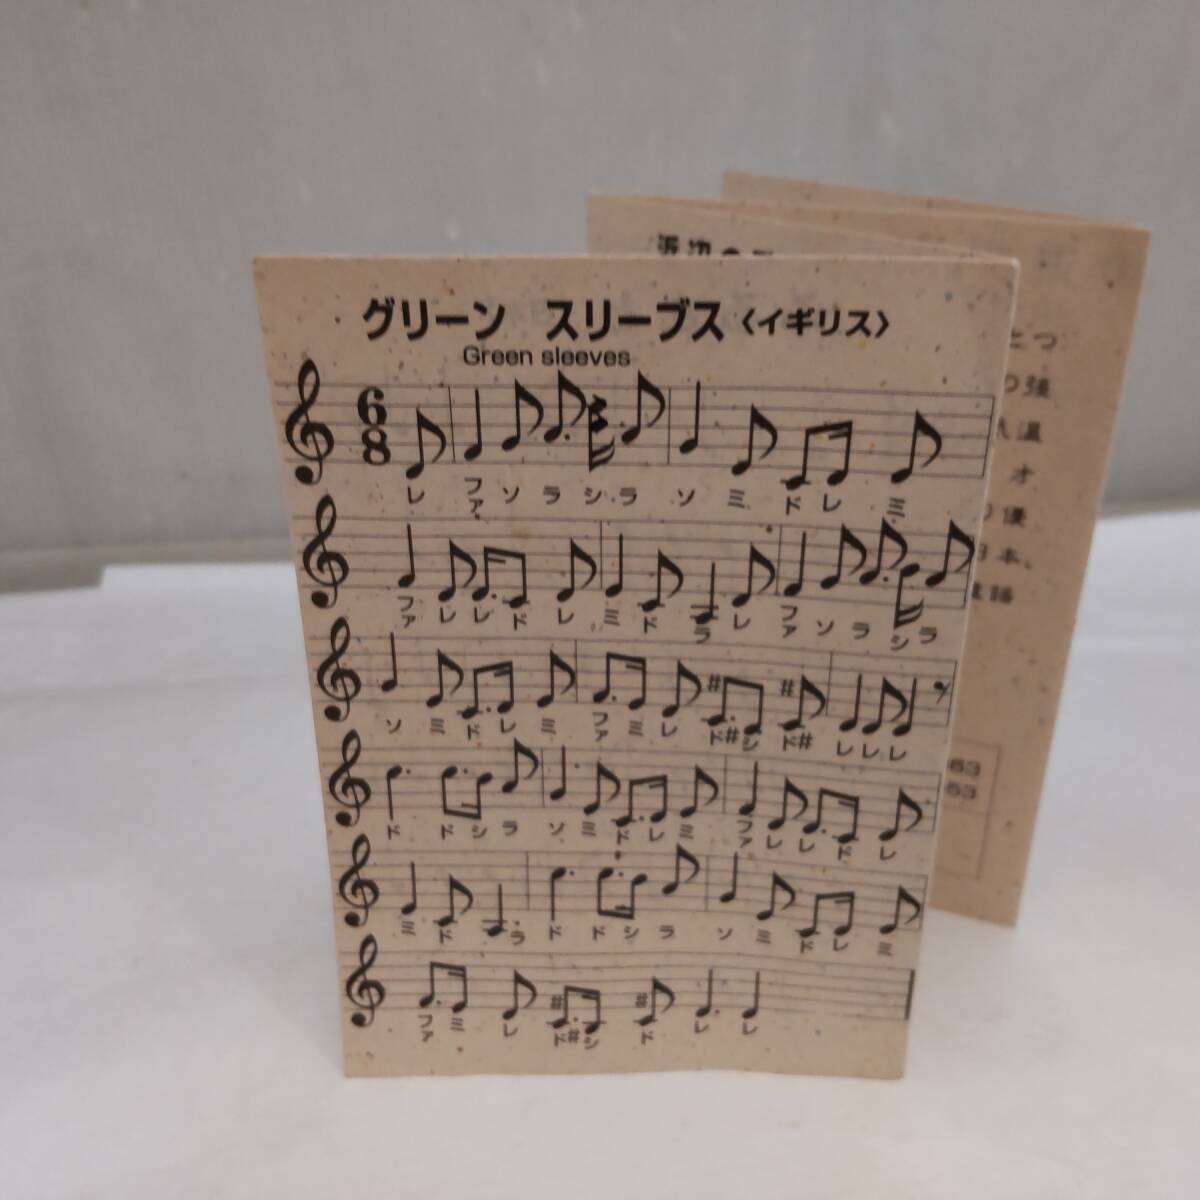 グリーン スリーブス〈イギリス〉
Green sleeves
6
8
レ ファ ソ ラ シ ラ ソ ミ ド レ ミ
ファ レ レ ド レ ミ ド ラ レ ファ ソ ラ シ ラ
ソ ミ ド レ ミ ファ ミ レ ド# シ ド# レ レ レ
ド ド シ ラ ソ ミ ド レ ミ ファ レ レ ド レ
ミ ド ラ ド ド シ ラ ソ ミ ド レ ミ
ファ ミ レ ド# シ ド レ レ
とつ
の強
温
オ
優
本、
63
53